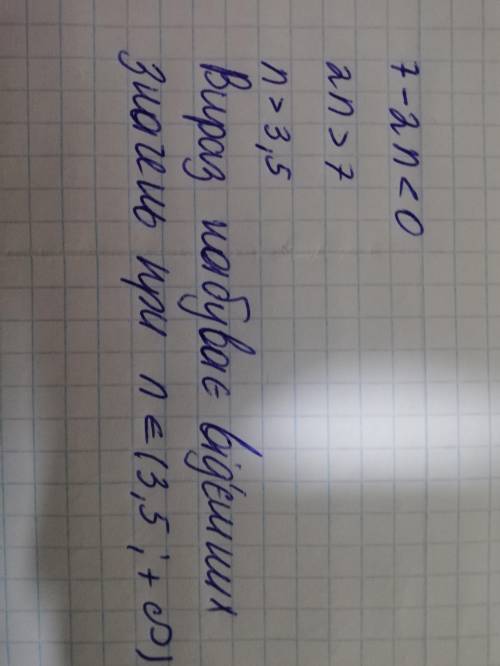 7-2n<0
2n>7
n>3,5
Вираз набуває від'ємних
значень при n∈(3,5;+∞)